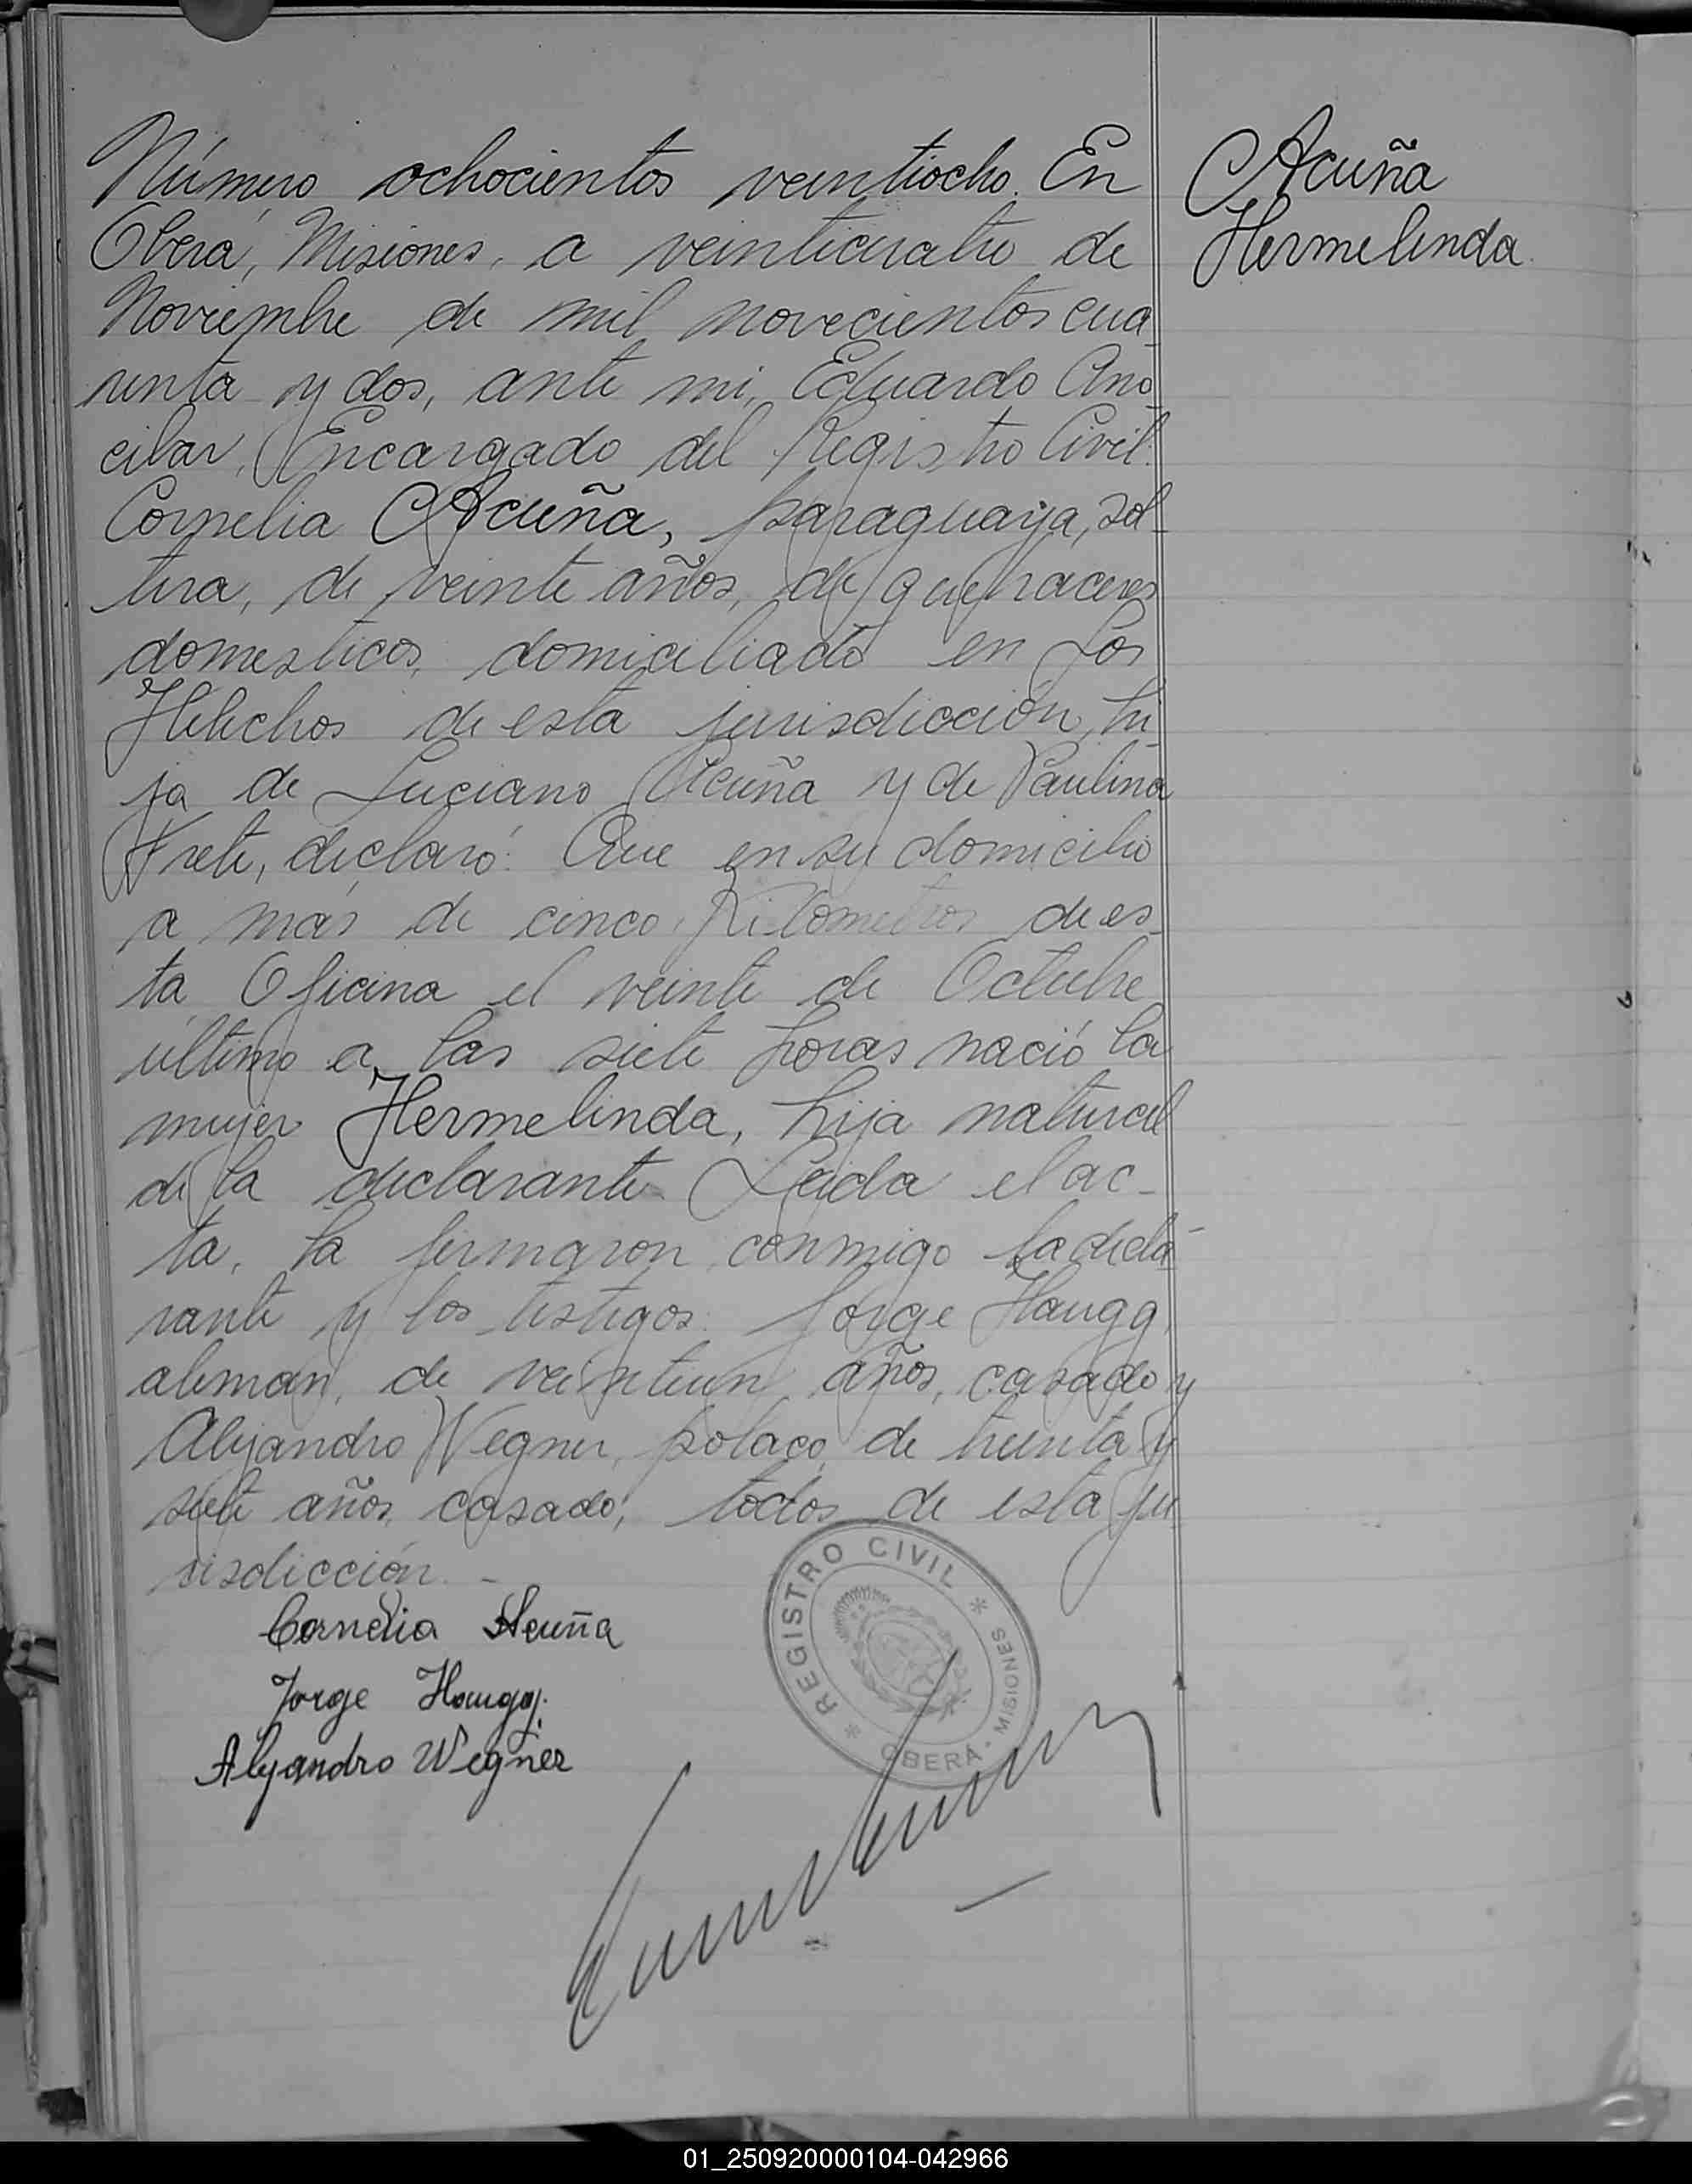 Número ochocientos veintiocho. En
Oberá, Misiones, a veinticuatro de
Noviembre de mil novecientos cua
renta y dos, ante mi, Eduardo Ano
cibar, Encargado del Registro Civil:
Cornelia Acuña, paraguaya, sol-
tera, de veinte años, de quehaceres
domesticos, domiciliado en Los
Helechos de esta jurisdicción, hi-
ja de Luciano Acuña y de Paulina
Frete, declaró: Que en su domicilio
a mas de cinco Kilometros de es-
ta Oficina el veinte de Octubre
último a las siete horas nació la
mujer Hermelinda, hija natural
de la declarante. Leida el ac-
ta, la firmaron conmigo la decla-
rante y los testigos: Jorge Haugg,
aleman, de veintiun años, casado y
Alejandro Wegner, polaco, de treinta y
siete años, casado; todos de esta ju
risdicción. -
Cornelia Acuña
Jorge Haugg.
Alejandro Wegner
Acuña
Hermelinda.
* REGISTRO CIVIL *
OBERÁ - MISIONES
01_250920000104-042966